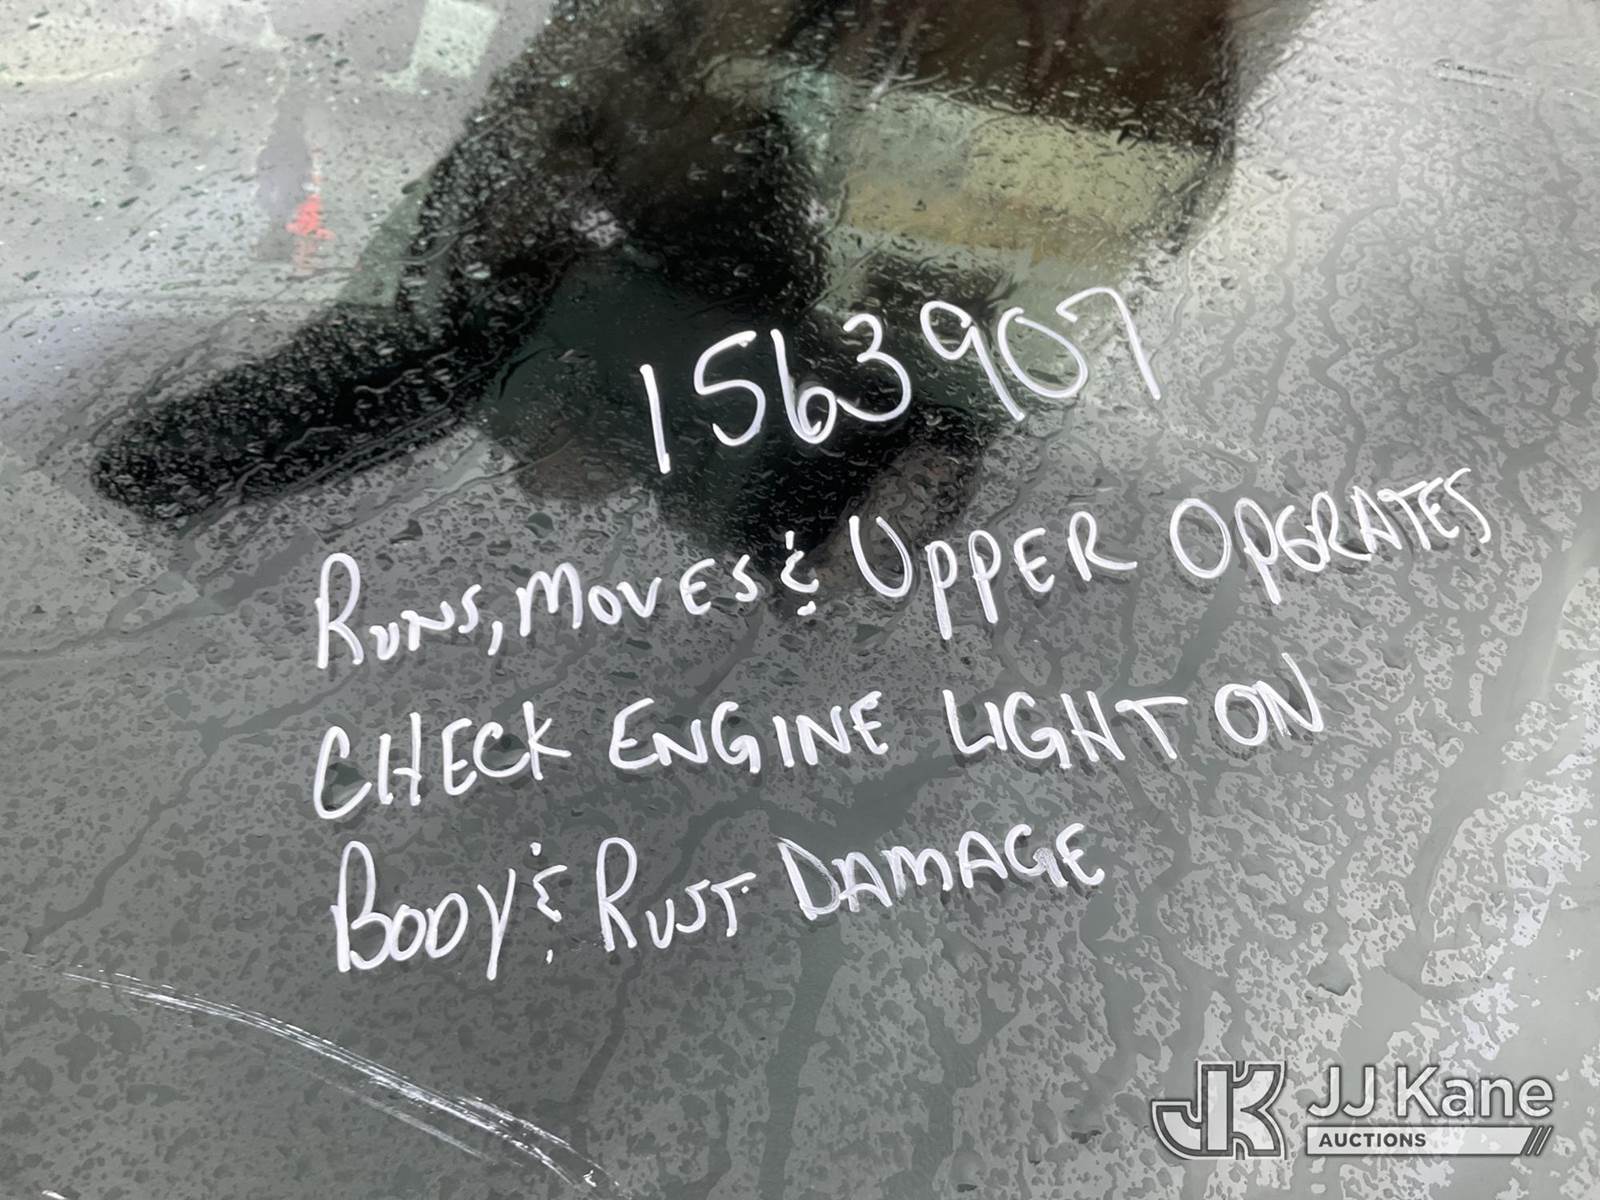 1563907
RUNS, MOVES & UPPER OPERATES
CHECK ENGINE LIGHT ON
BODY & RUST DAMAGE
JK JJ Kane
AUCTIONS